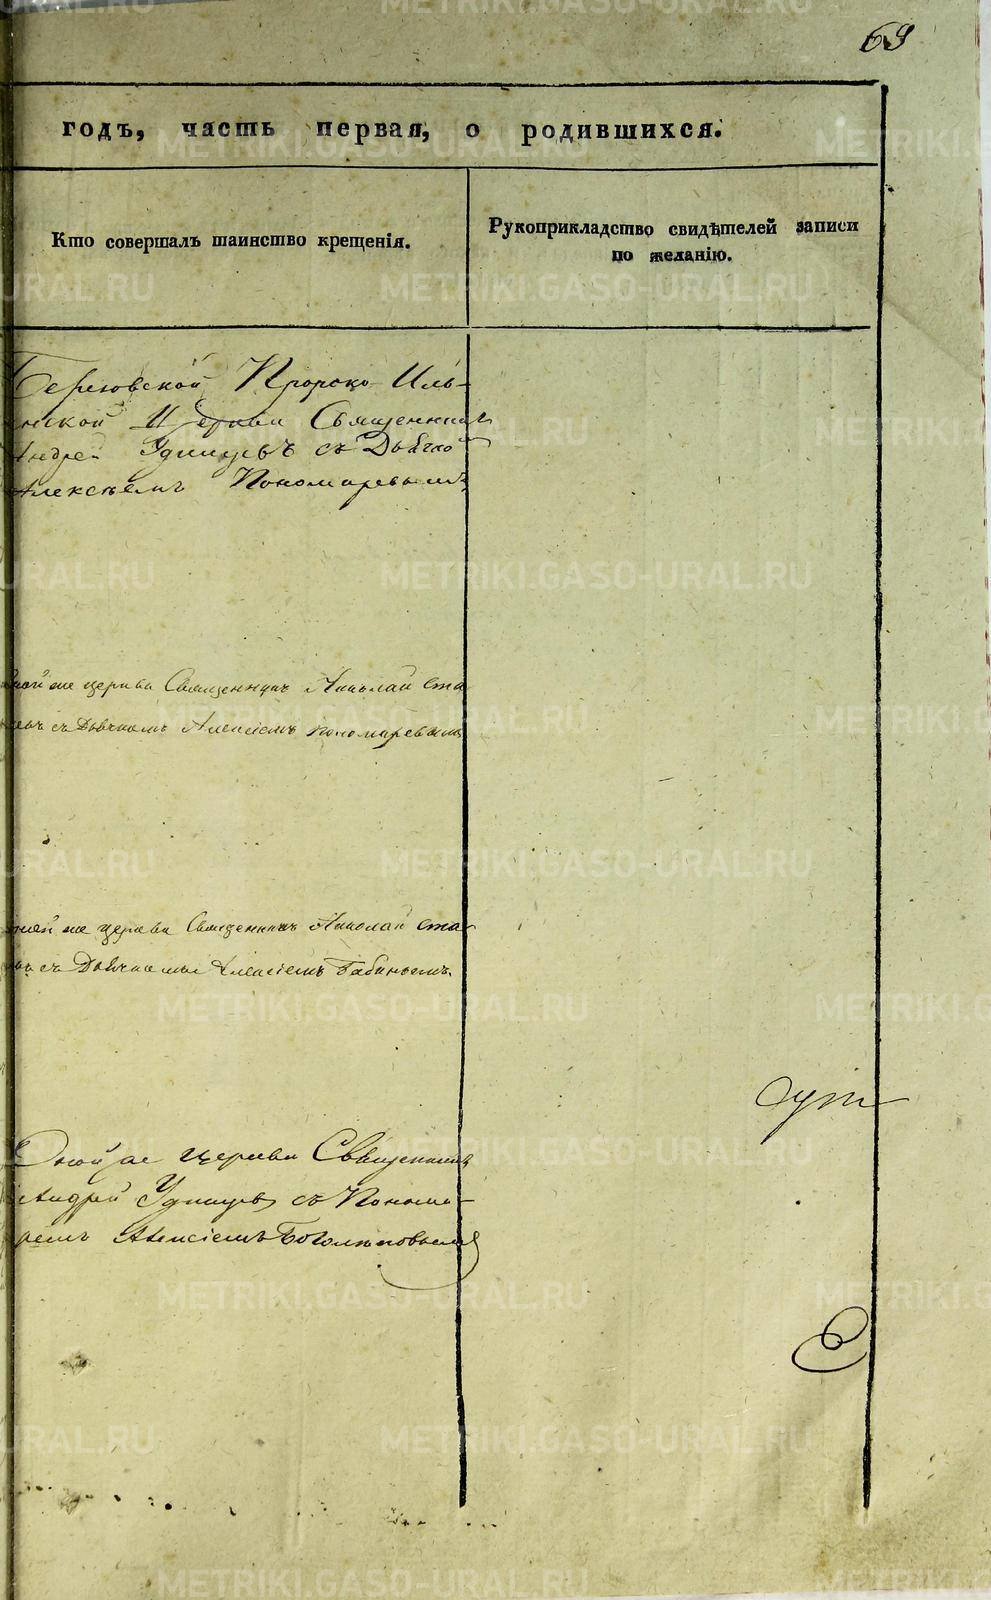 69
годъ, часть первая, о родившихся.
Кто совершалъ таинство крещенія.
Рукоприкладство свидѣтелей записи
по желанію.
Березовской Пророко-Иль-
инской Церкви Священникъ
Андрей Удинцевъ съ Дьячко
Алексѣемъ Пономаревымъ
же церкви Священникъ Николай Ста
съ Дьячкомъ Алексіемъ Пономаревымъ
же церкви Священникъ Николай Ста-
съ Дьячкомъ Алексіемъ Бабинымъ.
Оной же церкви Священникъ
Андрей Удинцевъ съ Понома-
ремъ Алексіемъ Боголѣповымъ
METRIKI.GASO-URAL.RU